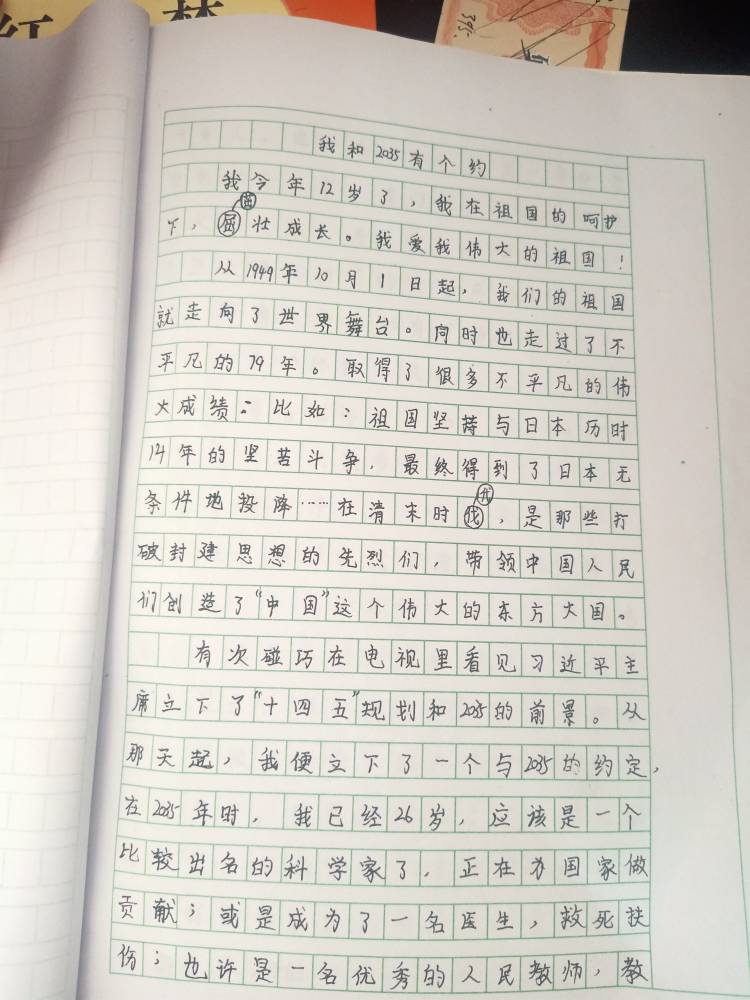 红 梦
395
我和2035有个约
我今年12岁了，我在祖国的呵护
茁
下，屈壮成长。我爱我伟大的祖国！
从1949年10月1日起，我们的祖国
就走向了世界舞台。同时也走过了不
平凡的79年。取得了很多不平凡的伟
大成绩：比如：祖国坚持与日本历时
14年的坚苦斗争，最终得到了日本无
代
条件地投降……在清末时伐，是那些打
破封建思想的先烈们，带领中国人民
们创造了“中国”这个伟大的东方大国。
有次碰巧在电视里看见习近平主
席立下了“十四五”规划和2035的前景。从
那天起，我便立下了一个与2035的约定，
在2035年时，我已经26岁，应该是一个
比较出名的科学家了，正在为国家做
贡献；或是成为了一名医生，救死扶
伤；也许是一名优秀的人民教师，教